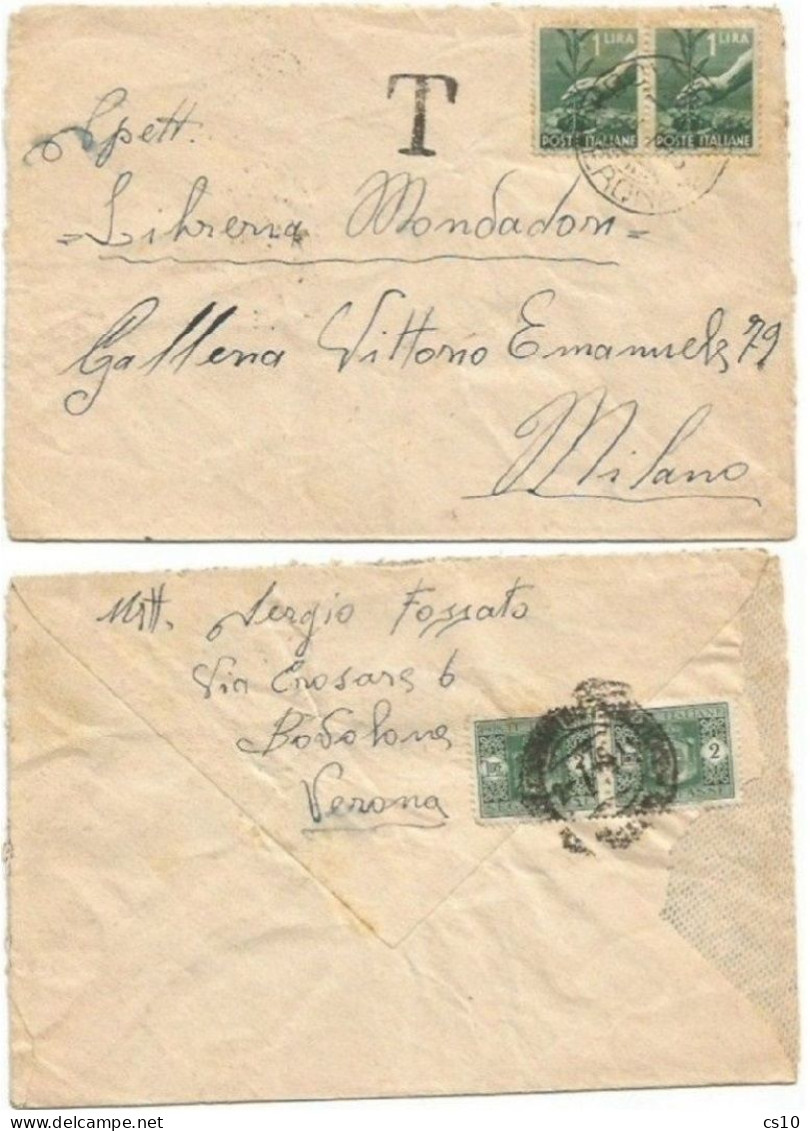 1 LIRA 1 LIRA
POSTE ITALIANE POSTE ITALIANE
T
Spett.
=Libreria Mondadori=
Galleria Vittorio Emanuele 79
Milano
Mitt. Sergio Fossato
Via Crosare 6
Verona
2
cs10